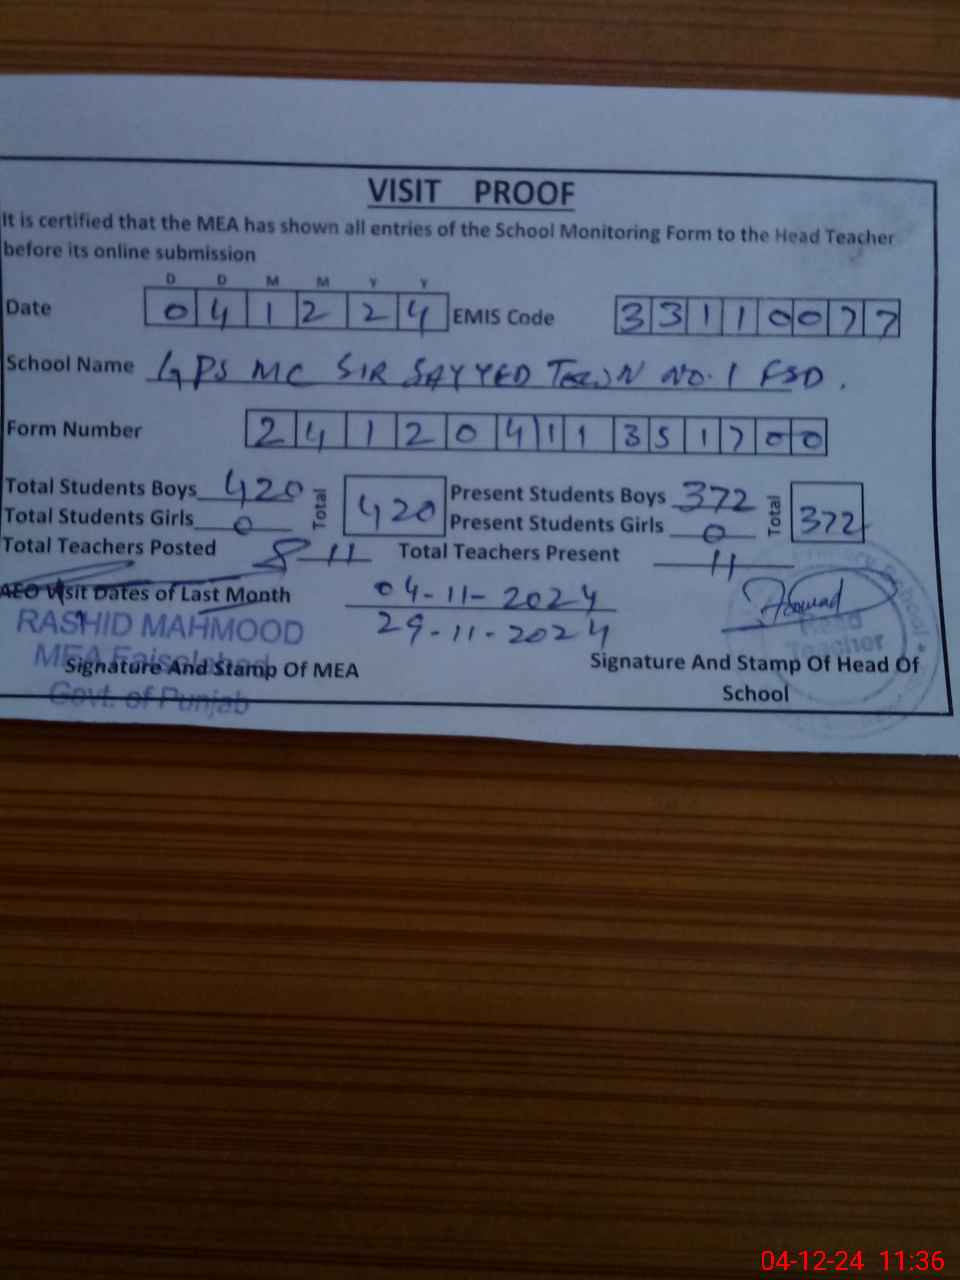 VISIT PROOF
It is certified that the MEA has shown all entries of the School Monitoring Form to the Head Teacher
before its online submission
D D M M Y Y
Date 0 4 1 2 2 4 EMIS Code 3 3 1 1 0 0 7 7
School Name GPS MC SIR SAYYED TOWN NO.1 FSD.
Form Number 2 4 1 2 0 4 1 1 3 5 1 7 0 0
Total Students Boys 420 Total 420 Present Students Boys 372 Total 372
Total Students Girls 0 Present Students Girls 0
Total Teachers Posted 11 Total Teachers Present 11
AEO Visit Dates of Last Month 04-11-2024
29-11-2024
RASHID MAHMOOD
MEA Faisalabad
Govt. of Punjab
Signature And Stamp Of MEA
Head
Teacher
Signature And Stamp Of Head Of
School
04-12-24 11:36